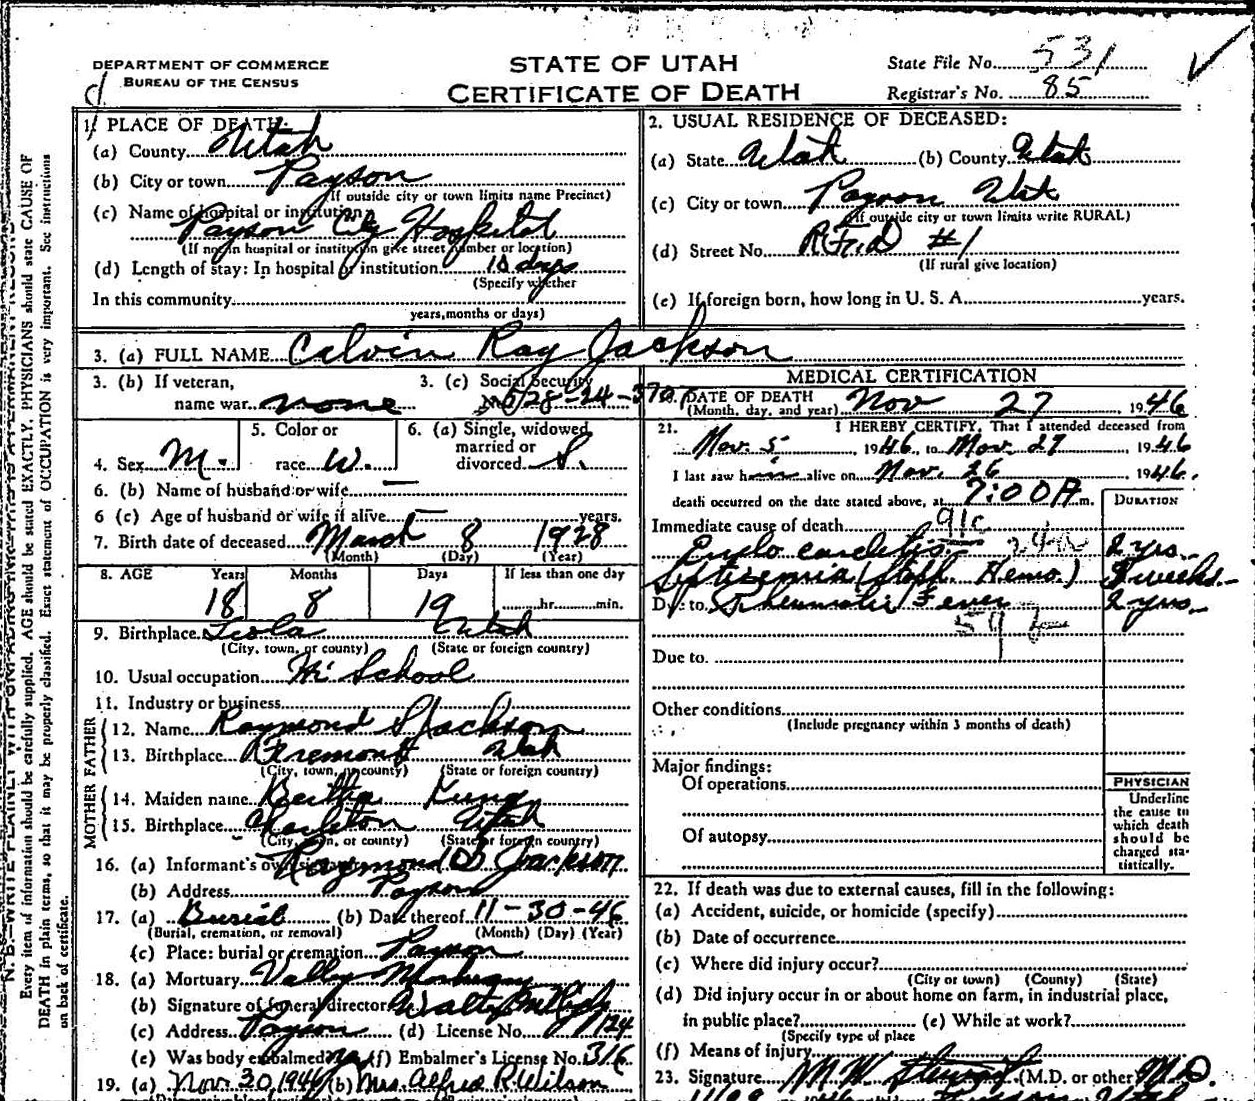 DEPARTMENT OF COMMERCE
BUREAU OF THE CENSUS
STATE OF UTAH
CERTIFICATE OF DEATH
State File No. 531
Registrar's No. 85
1. PLACE OF DEATH:
(a) County Utah
(b) City or town Payson
(If outside city or town limits name Precinct)
(c) Name of hospital or institution
Payson City Hospital
(If not in hospital or institution give street number or location)
(d) Length of stay: In hospital or institution 10 days
(Specify whether
In this community
years, months or days)
2. USUAL RESIDENCE OF DECEASED:
(a) State Utah (b) County Utah
(c) City or town Payson Utah
(If outside city or town limits write RURAL)
(d) Street No. #1
(If rural give location)
(e) If foreign born, how long in U. S. A. years.
3. (a) FULL NAME Calvin Ray Jackson
3. (b) If veteran,
name war none
3. (c) Social Security
No. 528-24-
4. Sex M.
5. Color or
race W.
6. (a) Single, widowed,
married or
divorced S.
6. (b) Name of husband or wife —
6 (c) Age of husband or wife if alive — years.
7. Birth date of deceased March 8 1928
(Month) (Day) (Year)
8. AGE Years Months Days If less than one day
18 8 19 hr. min.
9. Birthplace Utah
(City, town, or county) (State or foreign country)
10. Usual occupation School
11. Industry or business
FATHER
12. Name Raymond S Jackson
13. Birthplace Fremont Utah
(City, town, or county) (State or foreign country)
MOTHER
14. Maiden name Bertha
15. Birthplace Charleton Utah
(City, town, or county) (State or foreign country)
16. (a) Informant's own signature Raymond S Jackson
(b) Address Payson
17. (a) Burial (b) Date thereof 11-30-46
(Burial, cremation, or removal) (Month) (Day) (Year)
(c) Place: burial or cremation Payson
18. (a) Mortuary Valley Mortuary
(b) Signature of funeral director Walter
(c) Address Payson (d) License No. 124
(e) Was body embalmed? (f) Embalmer's License No. 316
19. (a) Nov. 30, 1946 (b) Mrs. Alfred R. Wilson
MEDICAL CERTIFICATION
20. DATE OF DEATH
(Month, day, and year) Nov 27 1946
21. I HEREBY CERTIFY, That I attended deceased from
Nov. 5 1946, to Nov. 27 1946
I last saw him alive on Nov. 26 1946.
death occurred on the date stated above, at 7:00 A m.
DURATION
Immediate cause of death 91c
Endo cardetis 2 yrs.
Septicemia (Staph. Hemo.) weeks.
Due to Rheumatic Fever 2 yrs.
Due to
Other conditions
(Include pregnancy within 3 months of death)
Major findings:
Of operations
Of autopsy
PHYSICIAN
Underline
the cause to
which death
should be
charged sta-
tistically.
22. If death was due to external causes, fill in the following:
(a) Accident, suicide, or homicide (specify)
(b) Date of occurrence
(c) Where did injury occur?
(City or town) (County) (State)
(d) Did injury occur in or about home on farm, in industrial place,
in public place? (e) While at work?
(Specify type of place
(f) Means of injury
23. Signature M W (M.D. or other M.D.
N. B.—WRITE PLAINLY WITH
Every item of information should be carefully supplied. AGE should be stated EXACTLY. PHYSICIANS should state CAUSE OF
DEATH in plain terms, so that it may be properly classified. Exact statement of OCCUPATION is very important. See instructions
on back of certificate.